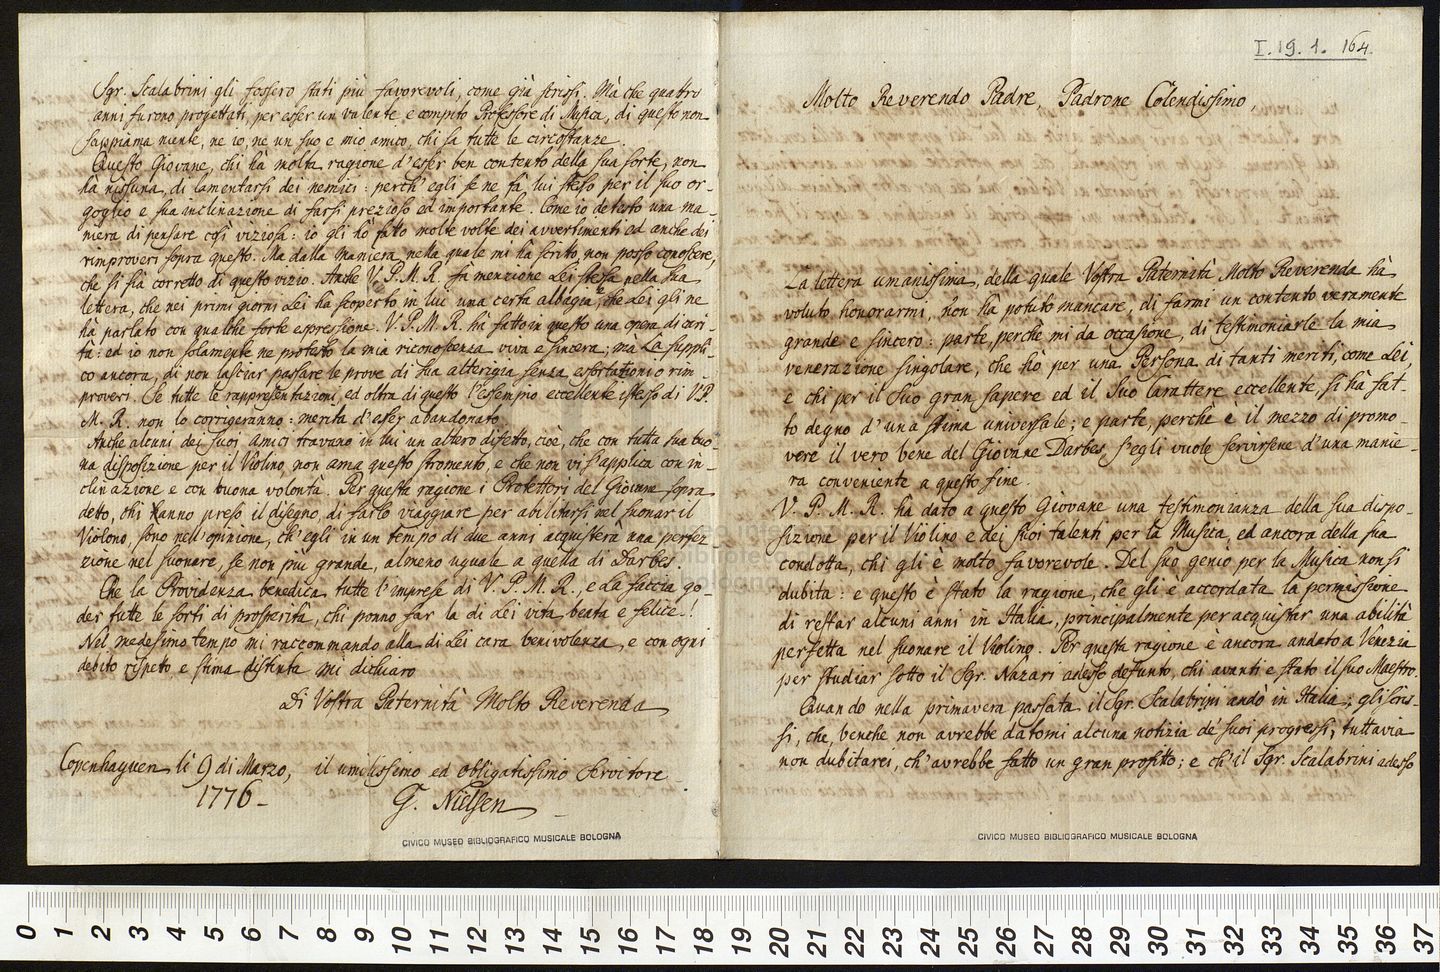 Sgr. Scalabrini gli fossero stati più favorevoli, come già scrissi. Mà che quattro
anni furono progettati, per esser un valente e compito Professore di Musica, di questo non
sappiama niente, ne io, ne un suo e mio amico, chi sa tutte le circostanze.
Questo Giovane, chi hà molta ragione d'esser ben contento della sua sorte, non
hà nissuna, di lamentarsi dei nemici: perch'egli se ne fà lui stesso per il suo or-
goglio e sua inclinazione di farsi prezioso ed importante. Come io detesto una ma-
niera di pensare così viziosa: io gli hò fatto molte volte dei avvertimenti ed anche dei
rimproveri sopra questo. Ma dalla maniera, nella quale mi hà scritto, non posso conoscere,
che si hà corretto di questo vizio. Anche V. P. M. R. fà menzione Lei stessa nella sua
lettera, che nei primi giorni Lei hà scoperto in lui una certa albagia, che Lei gli ne
hà parlato con qualche forte espressione. V. P. M. R. hà fatto in questo una opera di cari-
tà: ed io non solamente ne protesto la mia riconoscenza viva e sincera; mà La suppli-
co ancora, di non lasciar passare le prove di sua alterigia senza esortationi o rim-
proveri. Se tutte le rappresentazioni, ed oltra di questo l'esempio eccellente istesso di V. P.
M. R. non lo corrigeranno: merita d'esser abandonato.
Anche alcuni dei suoi amici travano in lui un altero difetto, cioè, che con tutta sua buo-
na disposizione per il Violino, non ama questo stromento, e che non vi s'applica con in-
clinazione e con buona volontà. Per questa ragione i Protettori del Giovane sopra
detto, chi hanno preso il disegno, di farlo viaggiare per abilitarsi nel suonar il
Violono, sono nell'opinione, ch'egli in un tempo di due anni acquisterà una perfez-
zione nel suonare, se non più grande, almeno uguale a quella di Darbes.
Che la Providenza benedica tutte l'imprese di V. P. M. R., e La faccia go-
der tutte le sorti di prosperità, chi ponno far la di Lei vita beata e felice!
Nel medesimo tempo mi raccommando alla di Lei cara benivolenza, e con ogni
debito rispeto e stima distinta mi dichiaro
Di Vostra Paternità Molto Reverenda
Copenhaguen li 9 di Marzo, il umilissimo ed obligatissimo Servitore
1776 G. Nielsen
CIVICO MUSEO BIBLIOGRAFICO MUSICALE BOLOGNA
I. 19. 1. 164.
Molto Reverendo Padre, Padrone Colendissimo,
La lettera umanissima, della quale Vostra Paternità Molto Reverenda hà
voluto honorarmi, non hà potuto mancare, di farmi un contento veramente
grande e sincero: parte, perche mi da occasione, di testimoniarle la mia
venerazione singolare, che hò per una Persona di tanti meriti, come Lei,
e chi per il Suo gran sapere ed il Suo Carattere eccellente, si hà fat-
to degno d'una stima universale; e parte, perche è il mezzo di promo-
vere il vero bene del Giovane Darbes, s'egli vuole servirsene d'una manie-
ra conveniente a questo fine.
V. P. M. R. hà dato a questo Giovane una testimonianza della sua dispo-
sizione per il Violino e dei suoi talenti per la Musica, ed ancora della sua
condotta, chi gli è molto favorevole. Del suo genio per la Musica non si
dubita: e questo è stato la ragione, che gli è accordata la permissione
di restar alcuni anni in Italia, principalmente per acquistar una abilità
perfetta nel suonare il Violino. Per questa ragione è ancora andato a Venezia
per studiar sotto il Sgr. Nazari adesso defunto, chi avanti e stato il suo Maestro.
Quando nella primavera passata il Sgr. Scalabrini andò in Italia; gli scris-
si, che, benche non avrebbe datomi alcuna notizia de' suoi progressi, tuttavia
non dubitarei, ch'avrebbe fatto un gran profitto; e ch'il Sgr. Scalabrini adesso
CIVICO MUSEO BIBLIOGRAFICO MUSICALE BOLOGNA
0 1 2 3 4 5 6 7 8 9 10 11 12 13 14 15 16 17 18 19 20 21 22 23 24 25 26 27 28 29 30 31 32 33 34 35 36 37